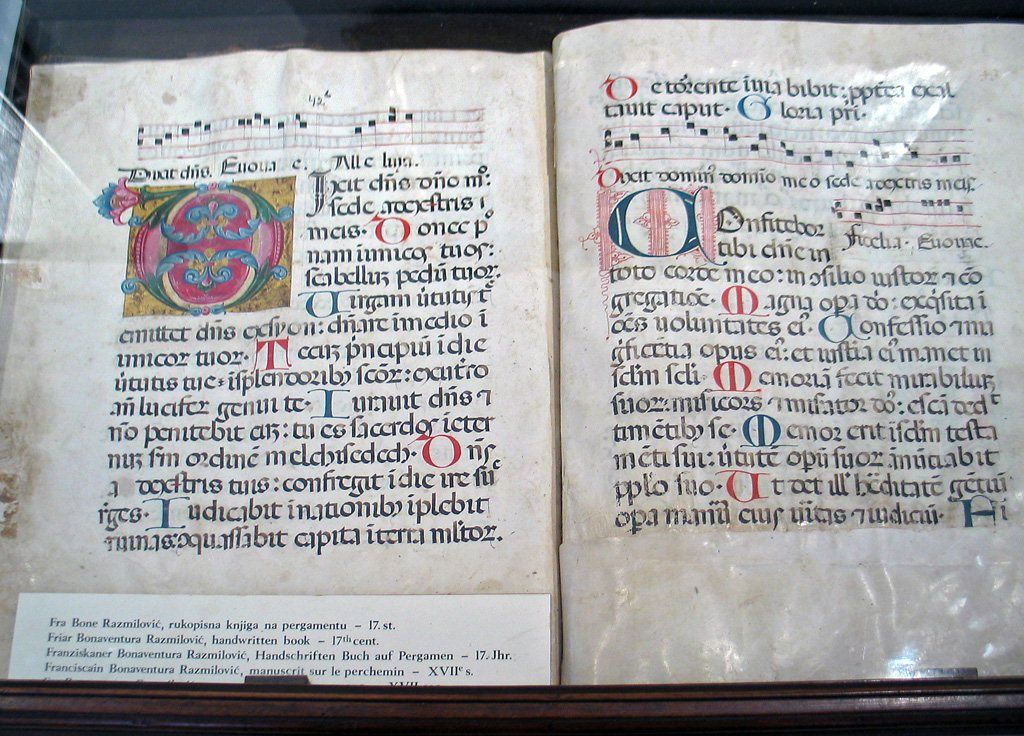 42
Dixit dns. Euouae. Alleluia.
Dixit dns dno mo:
sede a dextris
meis. Donec po
nam inimicos tuos:
scabellum pedum tuor.
Uirgam uirtutis t
emittet dns ex syon: dnare in medio i
nimicor tuor. Tecum principium i die
uirtutis tue isplendoribus scor: ex utero
an luciferum genui te. Iurauit dns
no penitebit eum: tu es sacerdos i eter
num sm ordine melchisedech. Dns
a dextris tuis: confregit i die ire sue
reges. Iudicabit i nationibus iplebit
ruinas: conquassabit capita i terra mltor.
De torente i uia bibit: pptea exal
tauit caput. Gloria pri.
Dixit domin domino meo sede a dextris meis.
Confitebor
tibi dne in
Fidelia. Euouae.
toto corde meo: in consilio iustor co
gregatioe. Magna opa do: exqsita i
oes uoluntates ei. Confessio mag
nificetia opus ei: et iustia ei manet in
sclm scli. Memoria fecit mirabilium
suor: misicors miserator do: esca ded
timetibus se. Memor erit i sclm testa
meti sui: uirtute opu suor anutiabit
pplo suo. Ut det ill heditate getiu
opa manu eius uitas iudiciu. Fi
Fra Bone Razmilović, rukopisna knjiga na pergamentu – 17. st.
Friar Bonaventura Razmilović, handwritten book – 17th cent.
Franziskaner Bonaventura Razmilović, Handschriften Buch auf Pergamen – 17. Jhr.
Franciscain Bonaventura Razmilović, manuscrit sur le perchemin – XVIIe s.